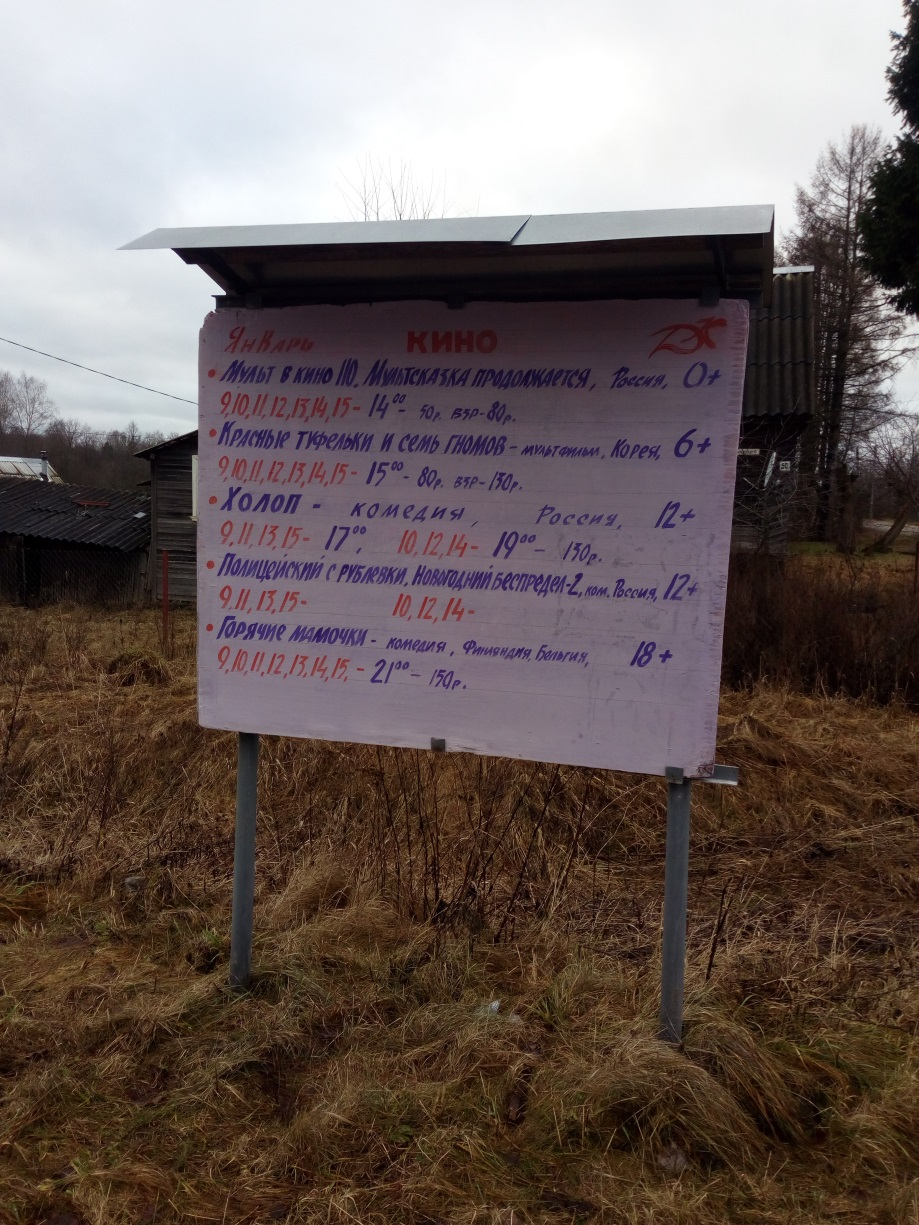 Январь КИНО ДК
• Мульт в кино 110. Мультсказка продолжается, Россия, 0+
9,10,11,12,13,14,15- 14⁰⁰- 50р. взр-80р.
• Красные туфельки и семь гномов - мультфильм, Корея, 6+
9,10,11,12,13,14,15- 15⁰⁰- 80р. взр-130р.
• Холоп - комедия, Россия, 12+
9,11,13,15- 17⁰⁰, 10,12,14- 19⁰⁰- 130р.
• Полицейский с Рублевки, Новогодний беспредел-2, ком. Россия, 12+
9,11,13,15- 10,12,14-
• Горячие мамочки - комедия, Финляндия, Бельгия, 18+
9,10,11,12,13,14,15,- 21⁰⁰- 150р.